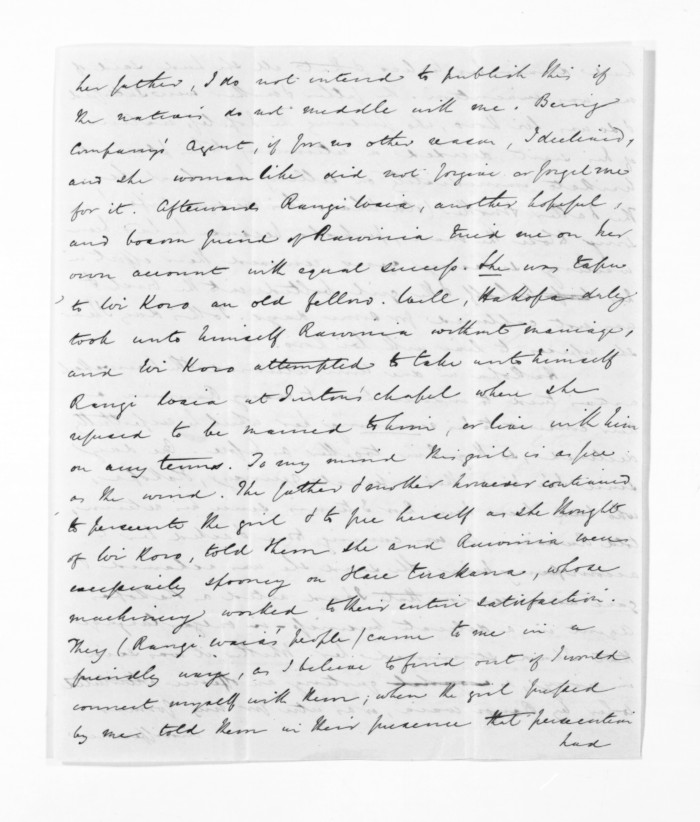 her father, I do not intend to publish this if
the natives do not meddle with me. Being
Company's Agent, if for no other reason, I declined,
and she woman like did not forgive or forget me
for it. Afterwards Rangi waia, another hopeful,
and bosom friend of Rawinia tried me on her
own account with equal success. She was tapu
to Wi Koro an old fellow. Well, Hakopa duly
took unto himself Rawinia without marriage,
and Wi Koro attempted to take unto himself
Rangi waia at chapel where she
refused to be married to him, or live with him
on any terms. To my mind this girl is as free
as the wind. The father & mother however continued
to persecute the girl & to free herself as she thought
of Wi Koro, told them she and Rawinia were
excessively spooney on whose
machinery worked to their entire satisfaction.
They (Rangi waia's people) came to me in a
friendly way, as I believe to find out if I would
connect myself with them; when the girl pressed
by me told them in their presence that persecution
had